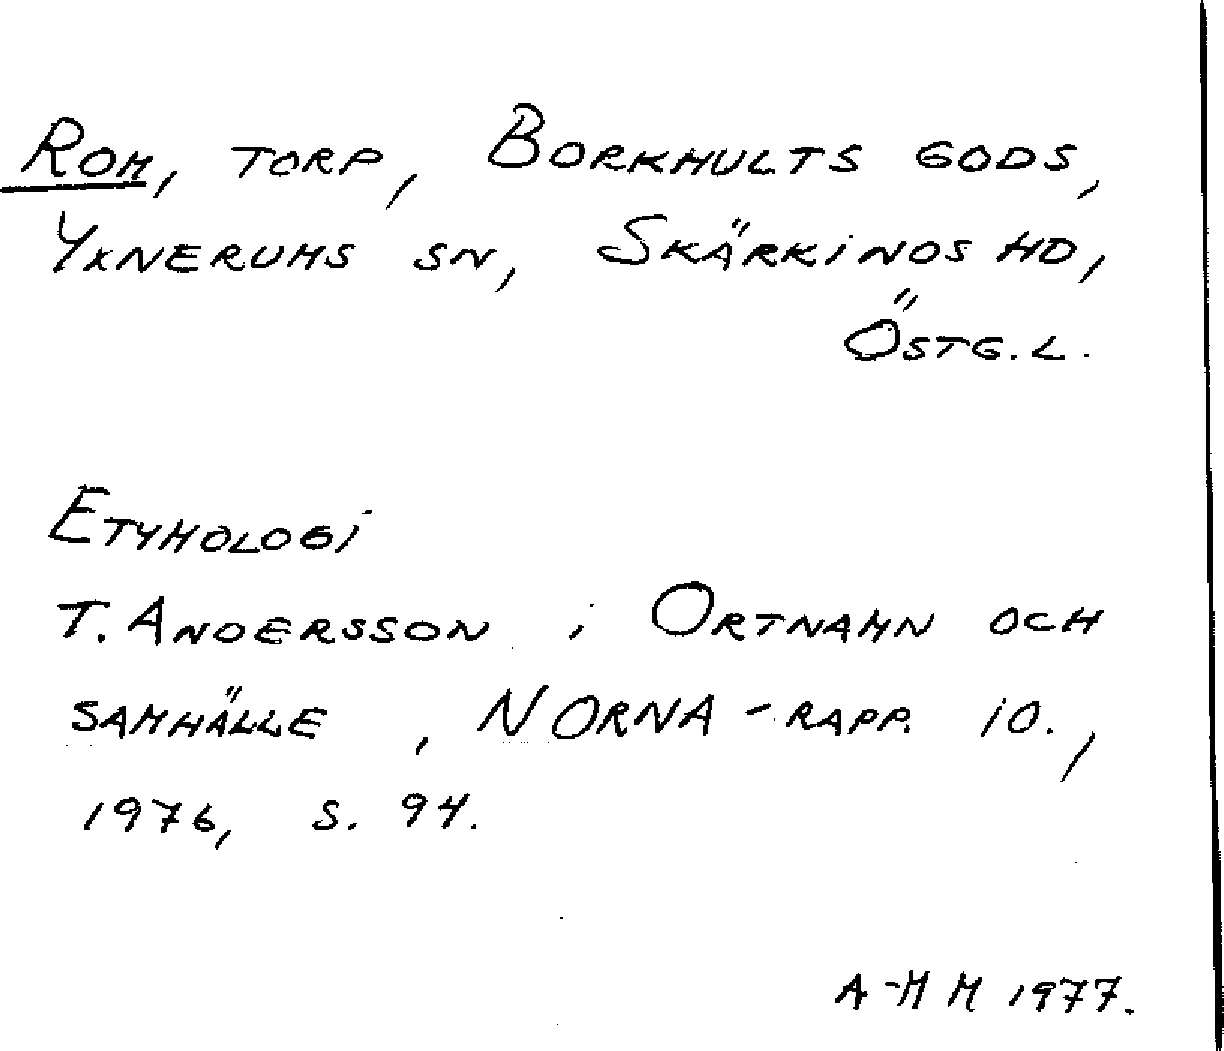 Rom, torp, Borkhults gods,
Yxnerums sn, Skärkinds hd,
Östg. l.
Etymologi
T. Andersson i Ortnamn och
samhälle, NORNA-rapp. 10.,
1976, s. 94.
A-M M 1977.